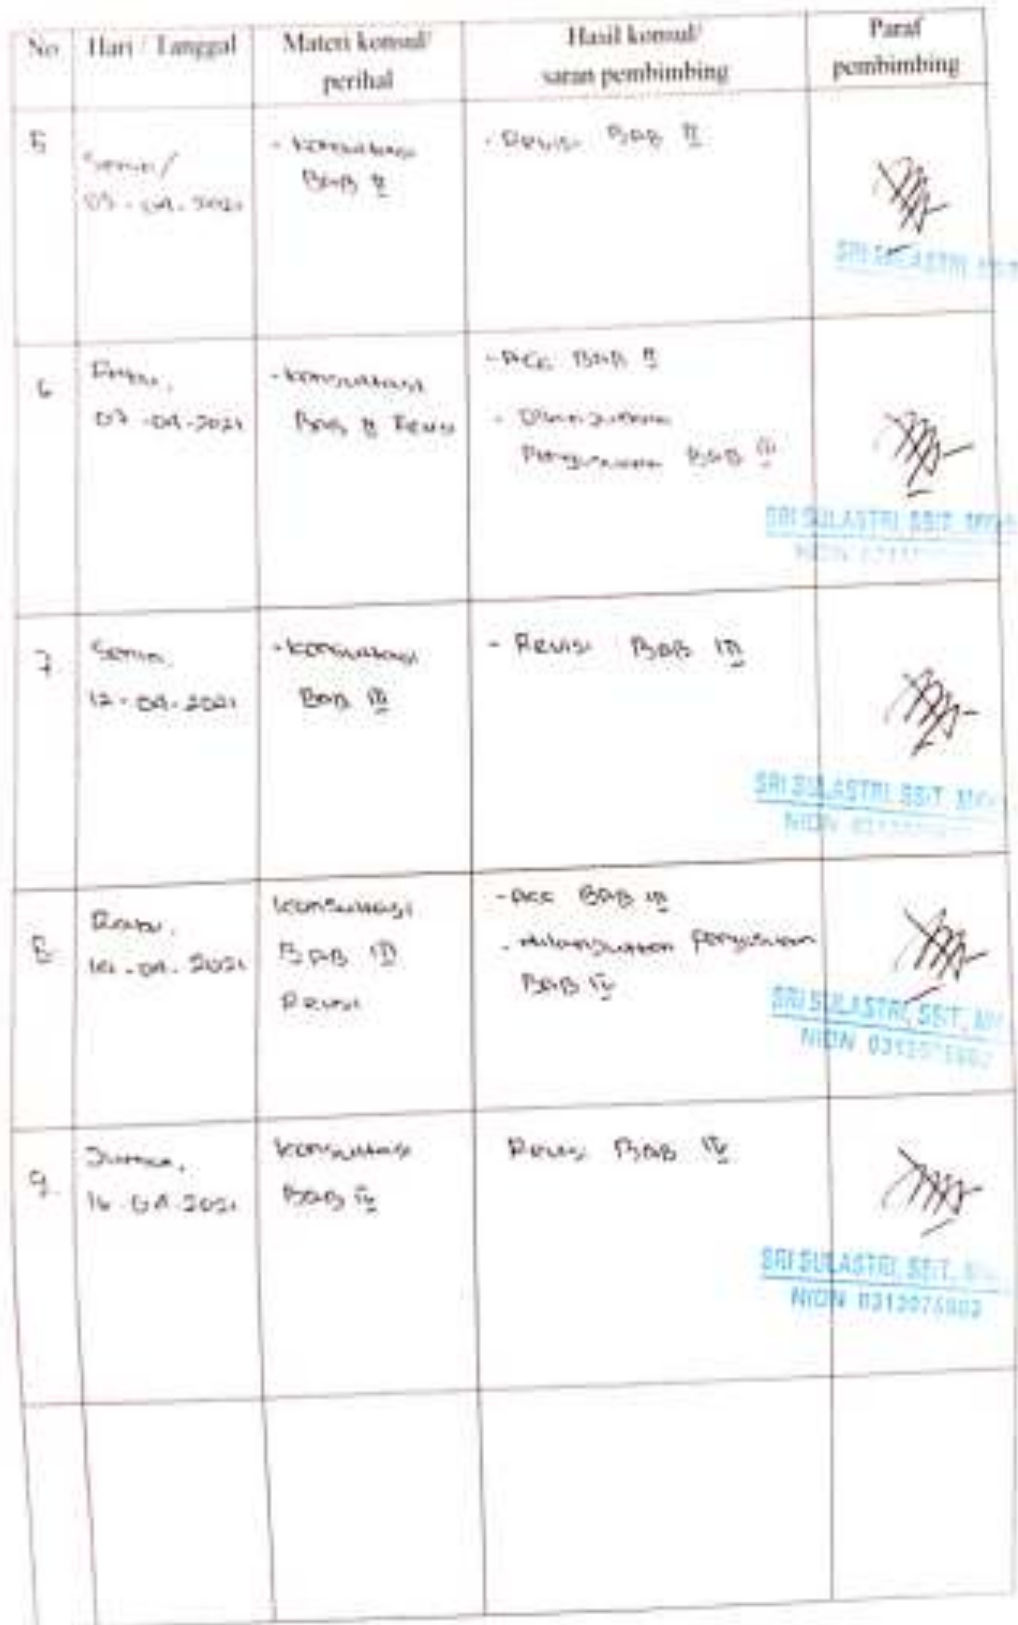 No
Hari / Tanggal
Materi konsul/
perihal
Hasil konsul/
saran pembimbing
Paraf
pembimbing
5
Senin/
05-04-2021
- Konsultasi
BAB II
- Revisi BAB II
SRI SULASTRI
6
Rabu,
07-04-2021
- Konsultasi
BAB II Revisi
- ACC BAB II
-
BAB III
SRI SULASTRI, SSiT,
NIDN
7.
Senin,
12-04-2021
- Konsultasi
BAB III
- Revisi BAB III
SRI SULASTRI, SSiT
NIDN
8.
Rabu,
14-04-2021
Konsultasi
BAB III
Revisi
- Acc BAB III
- dilanjutkan penyusunan
BAB IV
SRI SULASTRI, SSiT,
NIDN
9.
Jumat,
16-04-2021
Konsultasi
BAB IV
Revisi BAB IV
SRI SULASTRI, SSiT,
NIDN